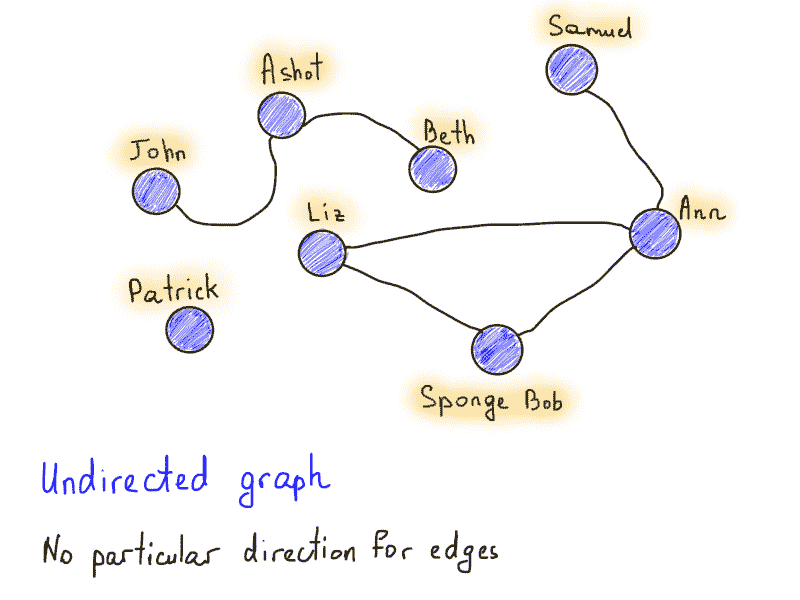 Samuel
Ashot
Beth
John
Liz
Ann
Patrick
Sponge Bob
Undirected graph
No particular direction for edges